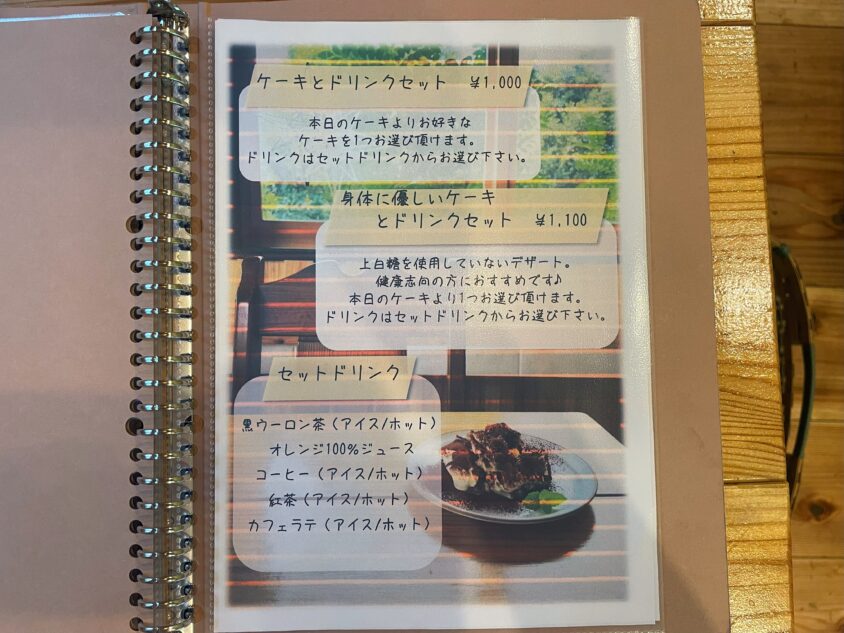 ケーキとドリンクセット ¥1,000
本日のケーキよりお好きな
ケーキを1つお選び頂けます。
ドリンクはセットドリンクからお選び下さい。
身体に優しいケーキ
とドリンクセット ¥1,100
上白糖を使用していないデザート。
健康志向の方におすすめです♪
本日のケーキより1つお選び頂けます。
ドリンクはセットドリンクからお選び下さい。
セットドリンク
黒ウーロン茶(アイス/ホット)
オレンジ100%ジュース
コーヒー(アイス/ホット)
紅茶(アイス/ホット)
カフェラテ(アイス/ホット)